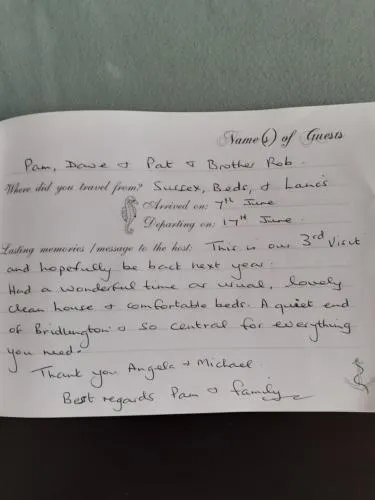 Name(s) of Guests
Pam, Dave & Pat & Brother Rob.
Where did you travel from? Sussex, Beds, & Lancs
Arrived on: 7TH June
Departing on: 17TH June.
Lasting memories / message to the host: This is our 3rd Visit
and hopefully be back next year.
Had a wonderful time as usual, lovely
clean house & comfortable beds. A quiet end
of Bridlington & so central for everything
you need.
Thank you Angela & Michael
Best regards Pam & family